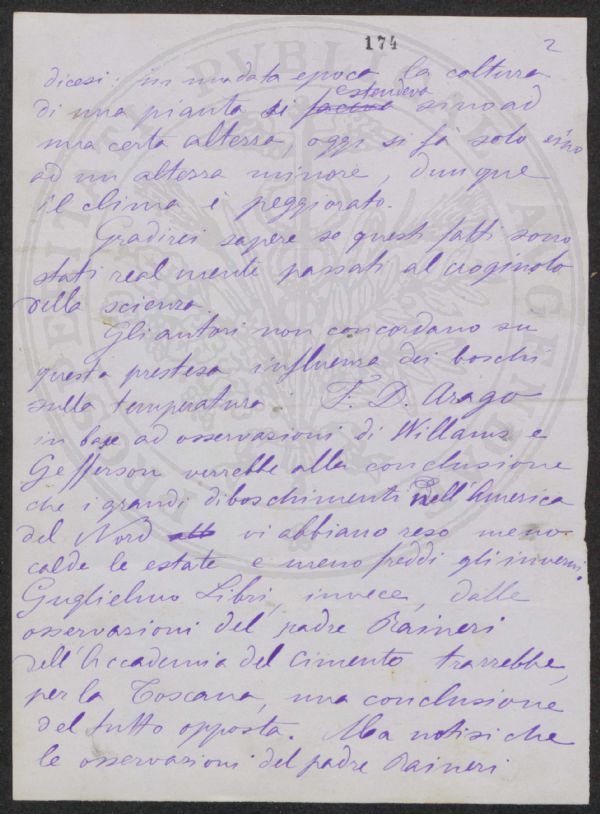 174 2
dicesi: in una data epoca la coltura
estendeva
di una pianta si faceva sino ad
una certa altezza, oggi si fà solo sino
ad un altezza minore, dunque
il clima è peggiorato.
Gradirei sapere se questi fatti sono
stati realmente passati al crogiuolo
della scienza.
Gli autori non concordano su
questa pretesa influenza dei boschi
sulla temperatura: F. D. Arago
in base ad osservazioni di Willams e
Gefferson verrebbe alla conclusione
che i grandi diboschimenti nell'America
del Nord vi abbiano reso meno
calde le estate e meno freddi gli inverni.
Guglielmo Libri, invece, dalle
osservazioni del padre Raineri
dell'Accademia del Cimento trarrebbe,
per la Toscana, una conclusione
del tutto opposta. Ma notisi che
le osservazioni del padre Raineri